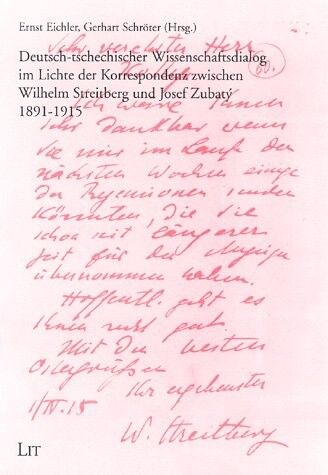 Ernst Eichler, Gerhart Schröter (Hrsg.)
Sehr verehrter Herr
60.
Deutsch-tschechischer Wissenschaftsdialog
im Lichte der Korrespondenz zwischen
Wilhelm Streitberg und Josef Zubatý
1891-1915
Ich wäre Ihnen
sehr dankbar wenn
Sie mir im Laufe der
nächsten Wochen einige
der Rezensionen senden
könnten, die Sie
schon seit längerer
Zeit für den Anzeiger
übernommen haben.
Hoffentl. geht es
Ihnen recht gut.
Mit den besten
Ostergrüßen
Ihr ergebenster
1/IV.15
W. Streitberg
LIT